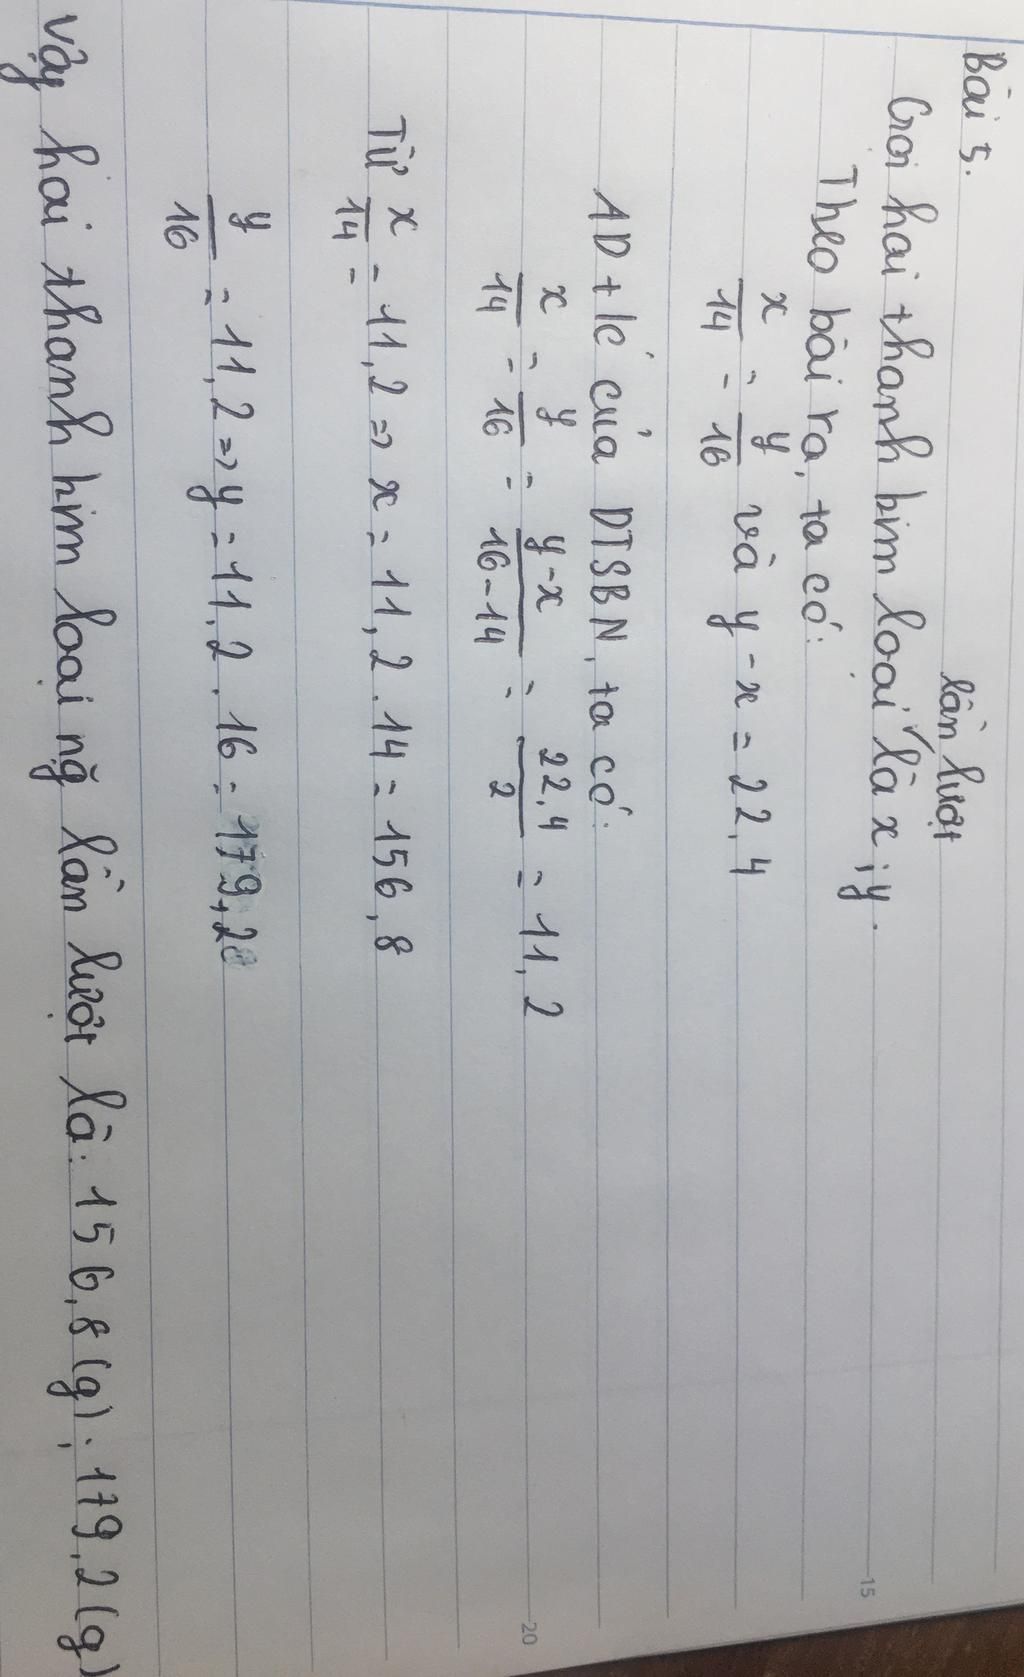 Bài 5.
lần lượt
Gọi hai thanh kim loại là x; y.
Theo bài ra, ta có:
x/14 = y/16 và y - x = 22,4
AD t/c của DTSBN, ta có:
x/14 = y/16 = y-x/16-14 = 22,4/2 = 11,2
Từ x/14 = 11,2 => x = 11,2 . 14 = 156,8
y/16 = 11,2 => y = 11,2 . 16 = 179,2
Vậy hai thanh kim loại nặng lần lượt là: 156,8 (g); 179,2 (g)
15
20